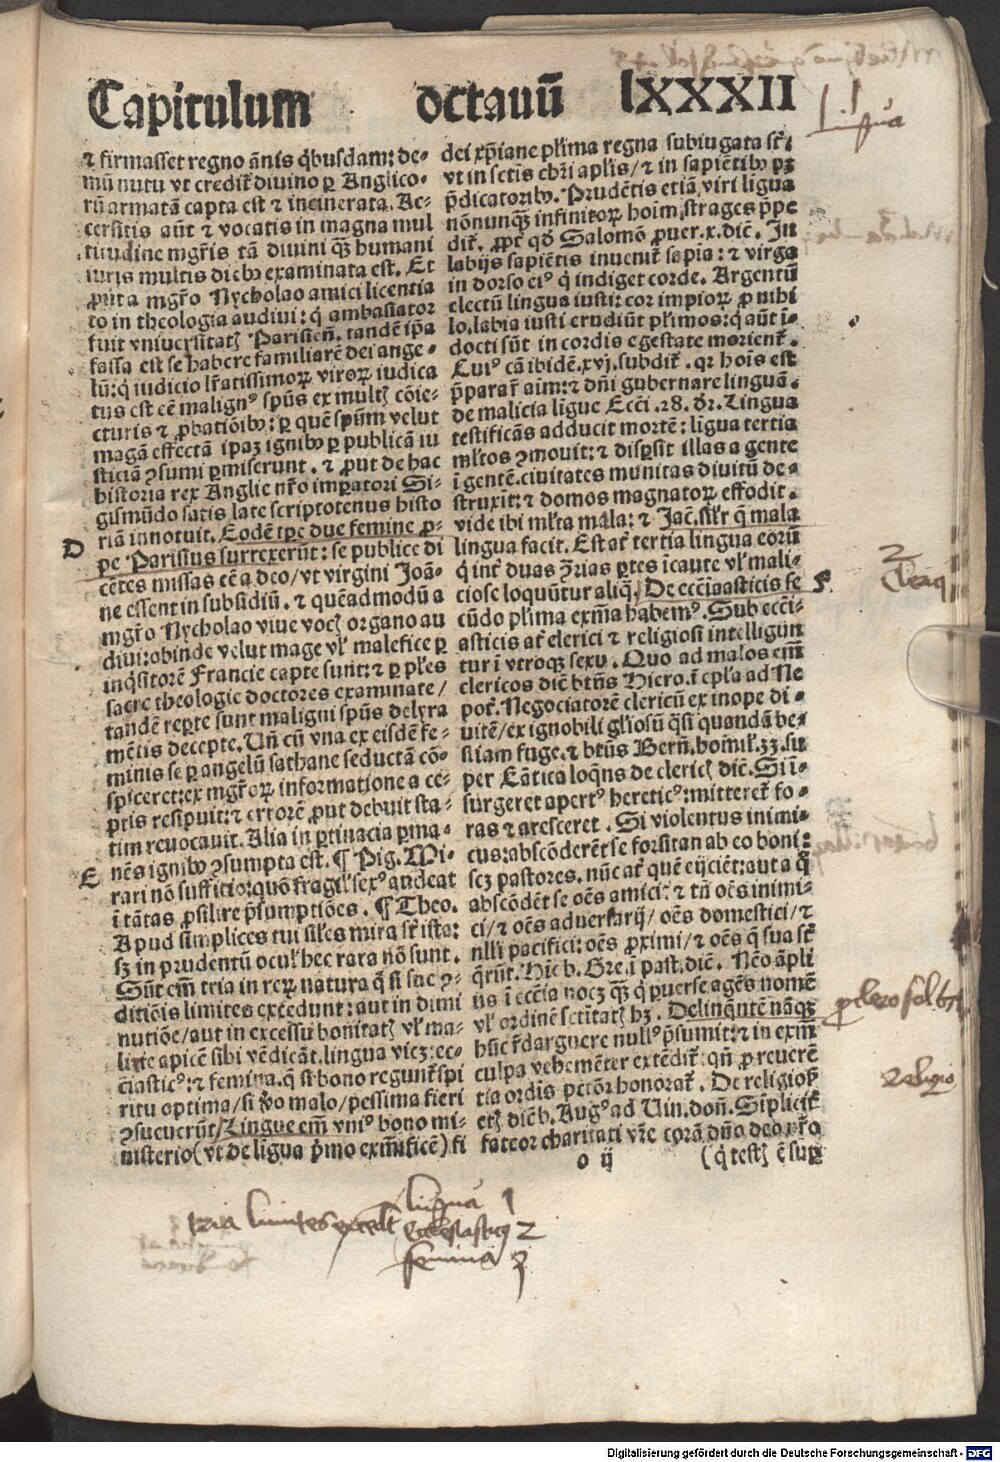 Capitulum octauū lxxxii
⁊ firmasset regno ānis q̇busdam: de-
mū nutu vt credit̄ diuino ꝑ Anglico-
rū armatā capta est ⁊ incinerata. Ac-
cersitis aūt ⁊ vocatis in magna mul
titudine mgr̄is tā diuini qꝫ humani
iuris multis diebꝰ examinata est. Et
ꝓut a mgr̄o Nycholao amici licentia
to in theologia audiui: q̇ ambasiator
fuit vniuersitatꝭ Parisień. tandē ip̄a
fassa est se habere familiarē dei ange-
lū: q̇ iudicio lr̄atissimoꝝ viroꝝ iudica
tus est eē malignꝰ spūs ex multꝭ cōie-
cturis ⁊ ꝓbatiōibꝰ: ꝑ quē spūm velut
magā effectā ip̄aꝫ ignibꝰ ꝑ publicā iu
sticiā ꝯsumi ꝑmiserunt. ⁊ ꝓut de hac
historia rex Anglie nr̄o imꝑatori Si-
gismūdo satis late scriptotenus histo
riā innotuit. Eodē tꝑe due femine ꝓ-
D
pe Parisius surrexerūt: se publice di
cētes missas eē a deo/ vt virgini Joā-
ne essent in subsidiū. ⁊ quēadmodū a
mgr̄o Nycholao viue vocꝭ organo au
diui: obinde velut mage vl̓ malefice ꝑ
inq̇sitorē Francie capte sunt: ⁊ ꝑ pl̓es
sacre theologie doctores examinate/
tandē reꝑte sunt maligni spūs delyra
mētis decepte. Uń cū vna ex eisdē fe-
minis se ꝑ angelū sathane seductā cō-
spiceret: ex mgr̄oꝝ informatione a ce-
ptis resipuit: ⁊ errorē ꝓut debuit sta-
tim reuocauit. Alia in ꝑtinacia ꝑma-
nēs ignibꝰ ꝯsumpta est. ¶ Pig. Mi-
E
rari nō sufficio: quō fragil̓ sexꝰ audeat
ī tātas ꝓsilire p̄sumptiōes. ¶ Theo.
Apud simplices tui sil̓es mira sr̄t ista:
sꝫ in prudentū ocul̓ hec rara nō sunt.
Sūt em̄ tria in reꝝ natura q̄ si sue ꝯ-
ditiōis limites excedunt: aut in dimi
nutiōe/ aut in excessu bonitatꝭ vl̓ ma-
licie apicē sibi vēdicāt. lingua vicꝫ: ec-
cl̓iasticꝰ: ⁊ femina. q̄ si bono regunt̄ spi
ritu optima/ si v̄o malo/ pessima fieri
ꝯsueuerūt/ Lingue em̄ vniꝰ bono mi-
nisterio (vt de ligua p̄mo exm̄ificē) fi
dei xp̄iane pl̓ima regna subiugata sr̄t.
vt in sctīs chr̄i aplīs/ ⁊ in sapiētibꝰ pꝫ
p̄dicatoribꝰ. Prudētis etiā viri lingua
nōnunqꝫ infinitoꝝ hoim̄ strages p̄pe
dit̄. ꝓpt̄ qd̓ Salomō ꝓuer. x. dic̄. In
labijs sapiētis inuenit̄ sapīa: ⁊ virga
in dorso eiꝰ q̇ indiget corde. Argentū
electū lingua iusti: cor impioꝝ ꝓ nihi
lo. labia iusti erudiūt pl̓imos: q̇ aūt ī-
docti sūt in cordis egestate morient̄.
Cuiꝰ cā ibidē. xvj. subdit̄. qr hoīs est
p̄parar̄ aim̄: ⁊ dn̄i gubernare linguā.
de malicia ligue Ecci. 28. dr̄. Lingua
testificās adducit mortē: lingua tertia
ml̓tos ꝯmouit: ⁊ disꝑsit illas a gente
ī gentē. ciuitates munitas diuitū de-
struxit: ⁊ domos magnatoꝝ effodit.
vide ibi ml̓ta mala: ⁊ Jac. sil̓r q̄ mala
lingua facit. Est at̄ tertia lingua eoru
q̇ int̄ duas ꝯ̄rias ꝑtes īcaute vl̓ mali-
ciose loquūtur aliq̇. De eccīasticis se
F
cūdo pl̓ima exm̄a habemꝰ. Sub ecci-
asticis at̄ clerici ⁊ religiosi intelligun
tur ī vtroqꝫ sexu. Quo ad malos em̄
clericos dic̄ btūs Hiero. ī epl̓a ad Ne
pot̄. Negociatorē clericū ex inope di-
uitē/ ex ignobili gl̓iosū q̄si quandā be-
stiam fuge. ⁊ btūs Berń. homil̓. 33. su
per Cātica loq̄ns de clericꝭ dic̄. Si ī-
surgeret apertꝰ hereticꝰ: mitteret̄ fo-
ras ⁊ aresceret. Si violentus inimi-
cus: abscōderēt se forsitan ab eo boni:
scꝫ pastores. nūc at̄ quē eijciēt: aut a q̇
abscōdēt se oēs amici: ⁊ tn̄ oēs inimi-
ci/ ⁊ oēs aduersarij/ oēs domestici/ ⁊
nulli pacifici: oēs ꝓximi/ ⁊ oēs q̄ sua sr̄t
q̄rūt. Hic b. Gre. ī past. dic̄. Nēo āpli
us ī ecc̄ia nocꝫ qꝫ q̇ ꝑuerse agēs nomē
vl̓ ordinē sctītatꝭ hꝫ. Delinq̄ntē nāqꝫ
hūc r̄darguere nullꝰ p̄sumit: ⁊ in exm̄
culpa vehemēter extēdit̄: qn̄ ꝓ reuerē
tia ordīs pctōr honorat̄. De religiosꝭ
etꝭ dic̄ b. Augꝰ ad Uin. don̄. Siplicit̄
fateor charitati vr̄e corā dn̄o deo nr̄o
o ij (q̇ testꝭ ē suꝑ
lingua
Cleric
religio
lingua 1
tria limites excedūt Ecclesiasticꝰ 2
femina 3
Digitalisierung gefördert durch die Deutsche Forschungsgemeinschaft - DFG